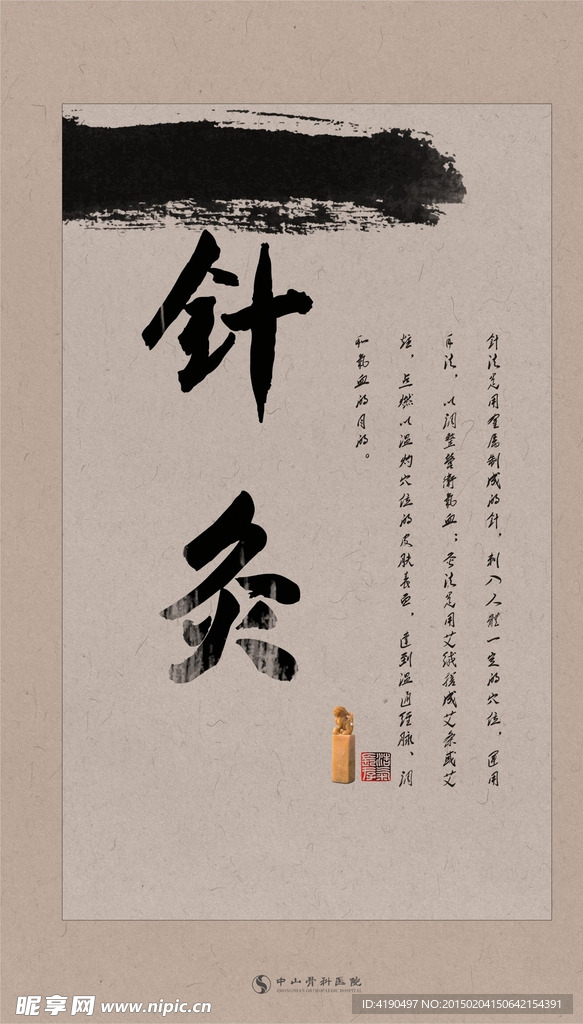 針
灸
針法是用金属制成的針，刺入人體一定的穴位，運用
手法，以调整營衛氣血；灸法是用艾绒搓成艾条或艾
炷，点燃以温灼穴位的皮肤表面，達到温通經脉、调
和氣血的目的。
中山骨科医院
ZHONGSHAN ORTHOPAEDIC HOSPITAL
昵享网 www.nipic.cn
ID:4190497 NO:20150204150642154391